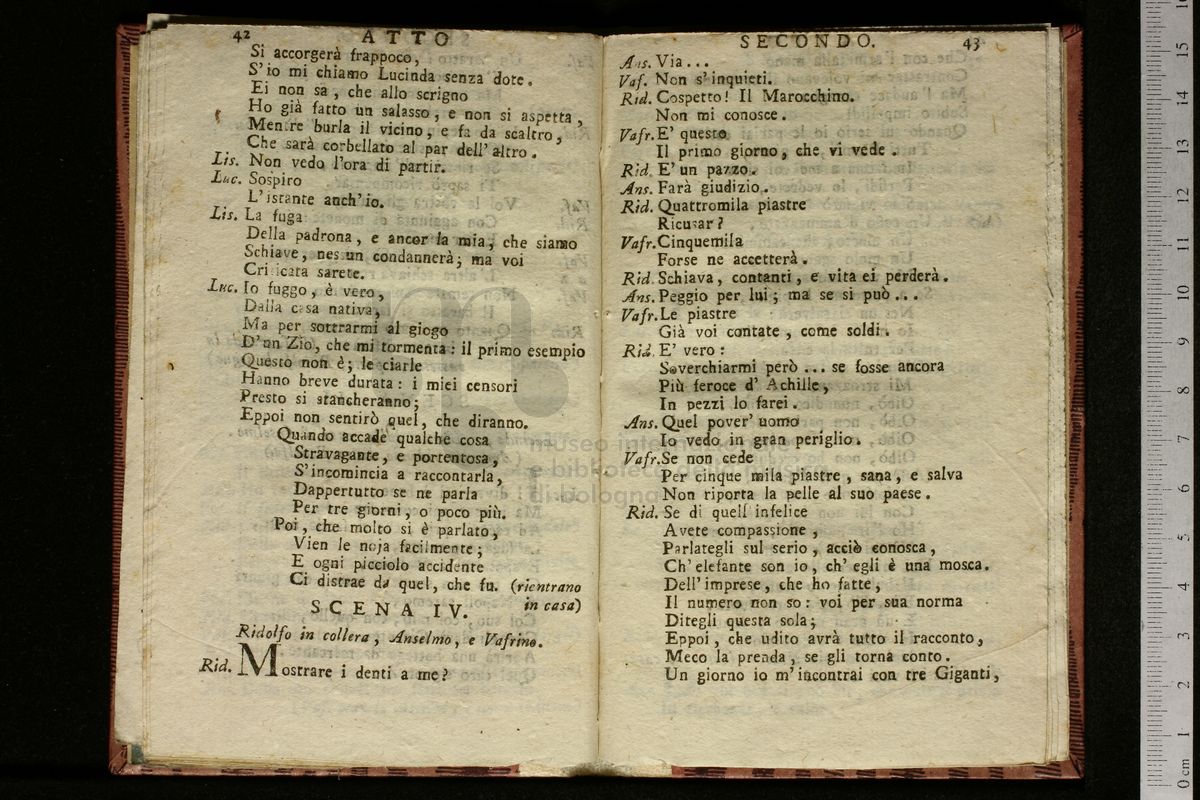 42 ATTO
Si accorgerà frappoco,
S'io mi chiamo Lucinda senza dote.
Ei non sa, che allo scrigno
Ho già fatto un salasso, e non si aspetta,
Mentre burla il vicino, e fa da scaltro,
Che sarà corbellato al par dell'altro.
Lis. Non vedo l'ora di partir.
Luc. Sospiro
L'istante anch'io.
Lis. La fuga
Della padrona, e ancor la mia, che siamo
Schiave, nessun condannerà; ma voi
Criticata sarete.
Luc. Io fuggo, è vero,
Dalla casa nativa,
Ma per sottrarmi al giogo
D'un Zio, che mi tormenta: il primo esempio
Questo non è; le ciarle
Hanno breve durata: i miei censori
Presto si stancheranno;
Eppoi non sentirò quel, che diranno.
Quando accade qualche cosa
Stravagante, e portentosa,
S'incomincia a raccontarla,
Dappertutto se ne parla
Per tre giorni, o poco più.
Poi, che molto si è parlato,
Vien le noja facilmente;
E ogni picciolo accidente
Ci distrae da quel, che fu. (rientrano
in casa)
SCENA IV.
Ridolfo in collera, Anselmo, e Vafrino.
Rid. Mostrare i denti a me?
SECONDO. 43
Ans. Via...
Vaf. Non s'inquieti.
Rid. Cospetto! Il Marocchino.
Non mi conosce.
Vafr. E' questo
Il primo giorno, che vi vede.
Rid. E' un pazzo.
Ans. Farà giudizio.
Rid. Quattromila piastre
Ricusar?
Vafr. Cinquemila
Forse ne accetterà.
Rid. Schiava, contanti, e vita ei perderà.
Ans. Peggio per lui; ma se si può...
Vafr. Le piastre
Già voi contate, come soldi.
Rid. E' vero:
Soverchiarmi però... se fosse ancora
Più feroce d'Achille,
In pezzi lo farei.
Ans. Quel pover' uomo
Io vedo in gran periglio.
Vafr. Se non cede
Per cinque mila piastre, sana, e salva
Non riporta la pelle al suo paese.
Rid. Se di quell' infelice
Avete compassione,
Parlategli sul serio, acciò conosca,
Ch'elefante son io, ch'egli è una mosca.
Dell'imprese, che ho fatte,
Il numero non so: voi per sua norma
Ditegli questa sola;
Eppoi, che udito avrà tutto il racconto,
Meco la prenda, se gli torna conto.
Un giorno io m'incontrai con tre Giganti,